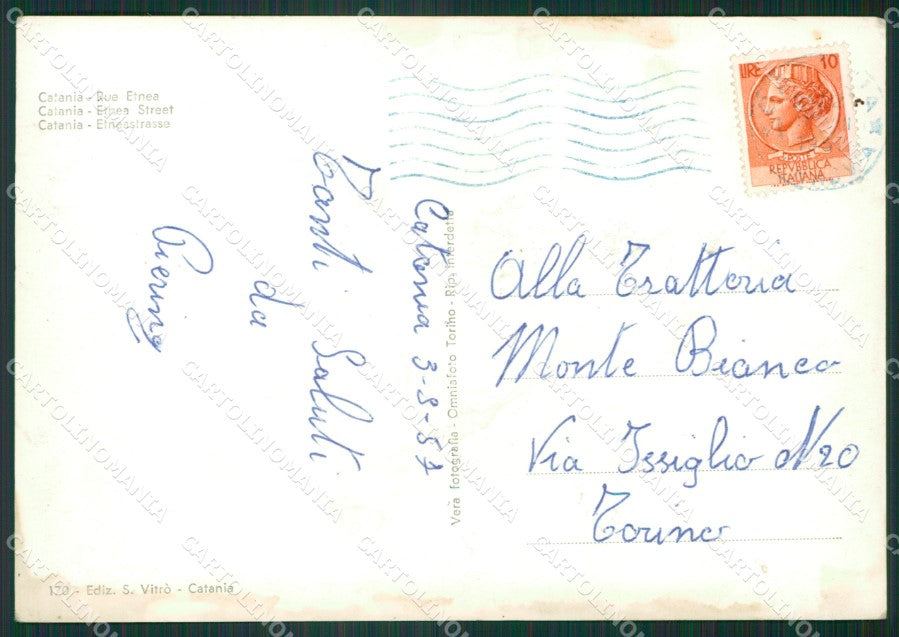 Catania - Rue Etnea
Catania - Etnea Street
Catania - Etneastrasse
LIRE 10
POSTE
REPVBBLICA
ITALIANA
Catania 3-9-57
Tanti Saluti
da
Pierino
Alla Trattoria
Monte Bianco
Via Issiglio N 20
Torino
Vera fotografia - Omniafoto Torino - Rip. Interdetta
170 - Ediz. S. Vitrò - Catania
CARTOLINOMANIA